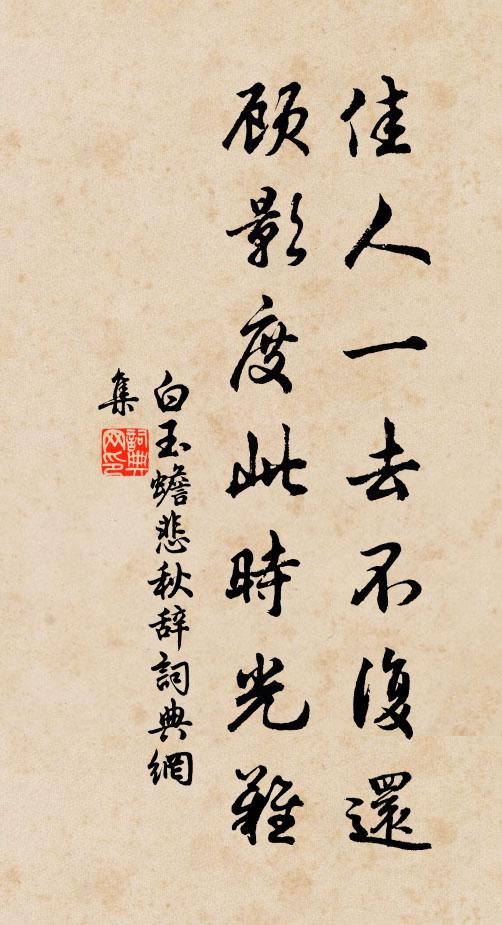 佳人一去不復還
顾影度此時光難
白玉蟾悲秋辞詞典網
集
詞典网印